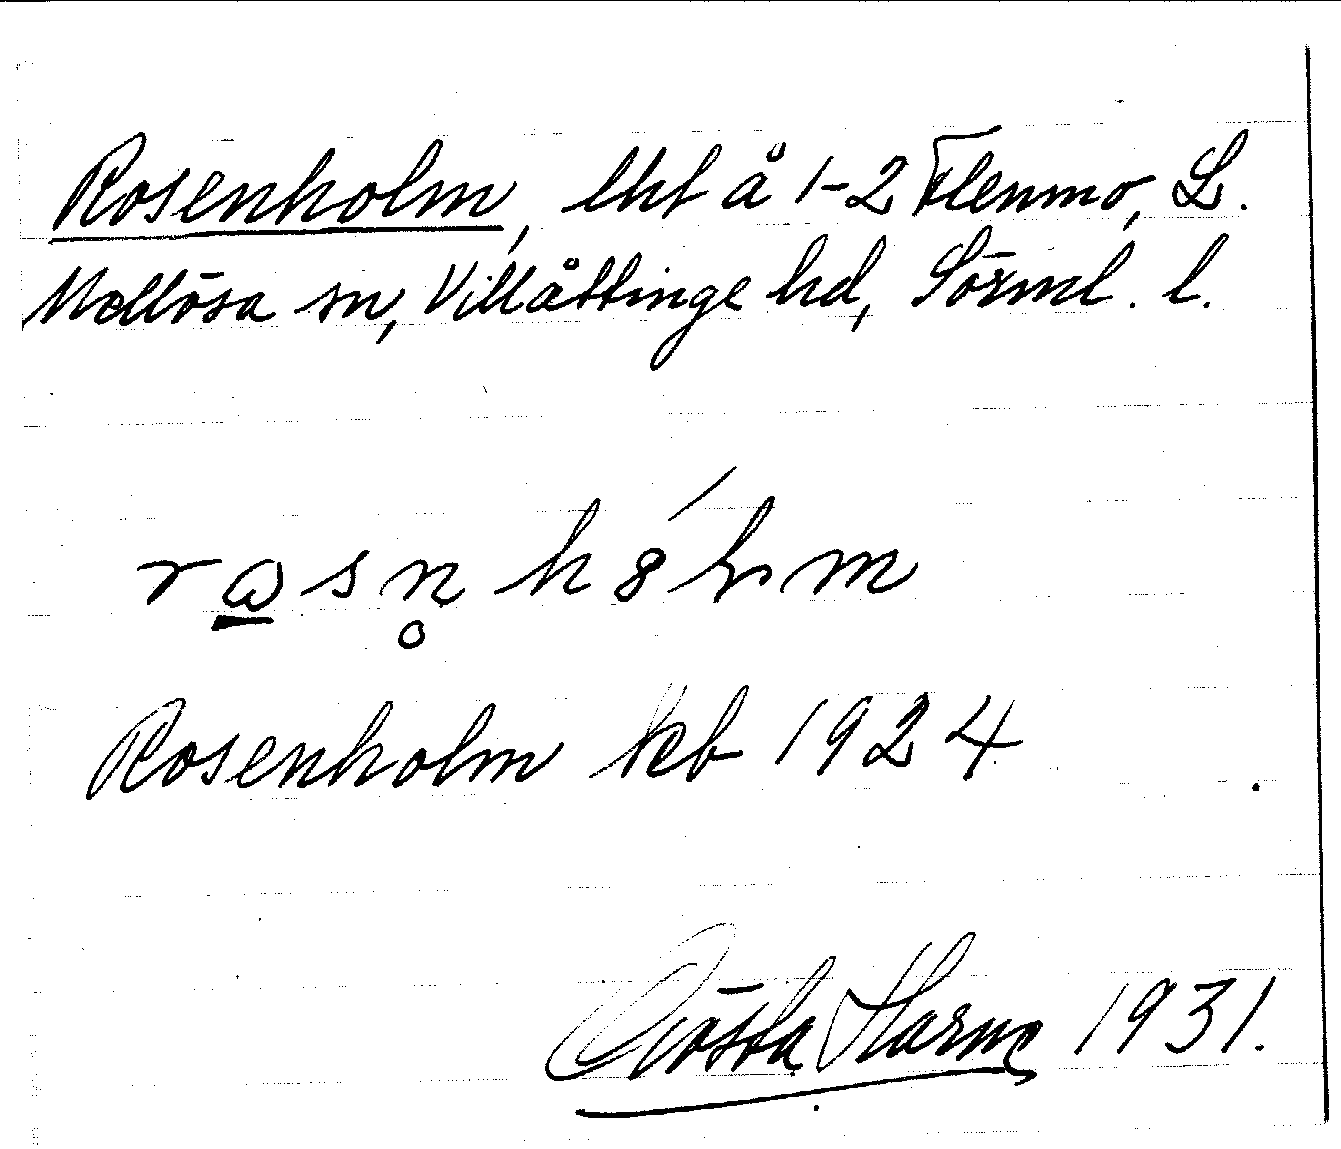 Rosenholm, lht å 1-2 Flenmo, L.
Mellösa sn, Villåttinge hd, Sörml. l.
Rosenholm kb 1924
Gösta Harne 1931.